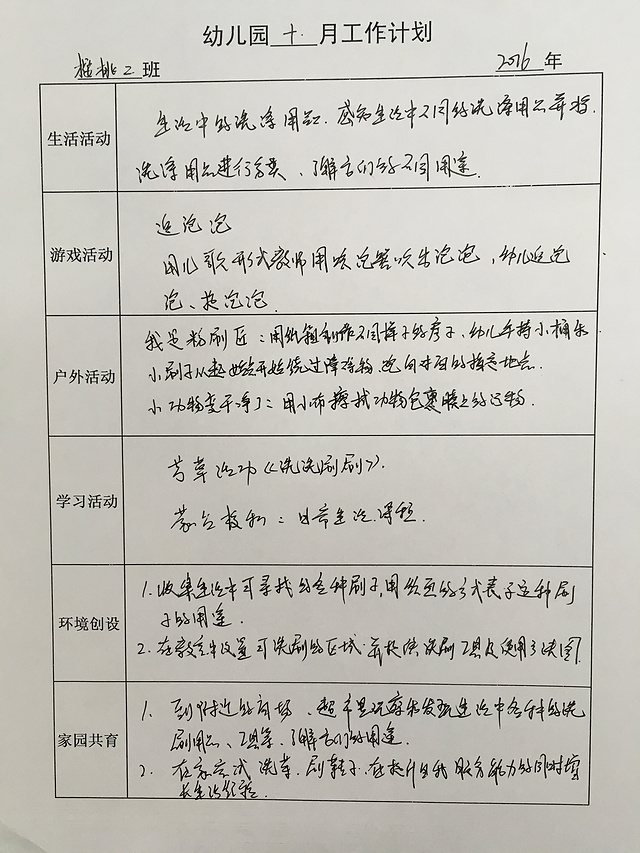 幼儿园十月工作计划
核桃2班 2016年
生活活动
生活中的洗涤用品. 感知生活中不同的洗涤用品并将
洗涤用品进行分类、了解它们的不同用途.
游戏活动
追泡泡
用儿歌形式教师用吹泡器吹出泡泡,幼儿追泡
泡、找泡泡.
户外活动
我是粉刷匠:用纸箱制作不同样子的房子,幼儿手持小桶和
小刷子从起始点开始绕过障碍物,走向对面的指定地点.
小动物变干净了:用小布擦拭动物包裹膜上的污物.
学习活动
芳草活动《洗洗刷刷》.
蒙台梭利:日常生活.课程.
环境创设
1.收集生活中可寻找的各种刷子,用绘画的方式表示这种刷
子的用途.
2.在教室中设置可洗刷的区域.并提供洗刷工具及使用方法图.
家园共育
1. 到附近的商场、超市里观察和发现生活中各种各样的洗
刷用品、工具等.了解它们的用途.
2. 在家尝试洗菜.刷鞋子.在提升自我服务能力的同时增
长生活经验.